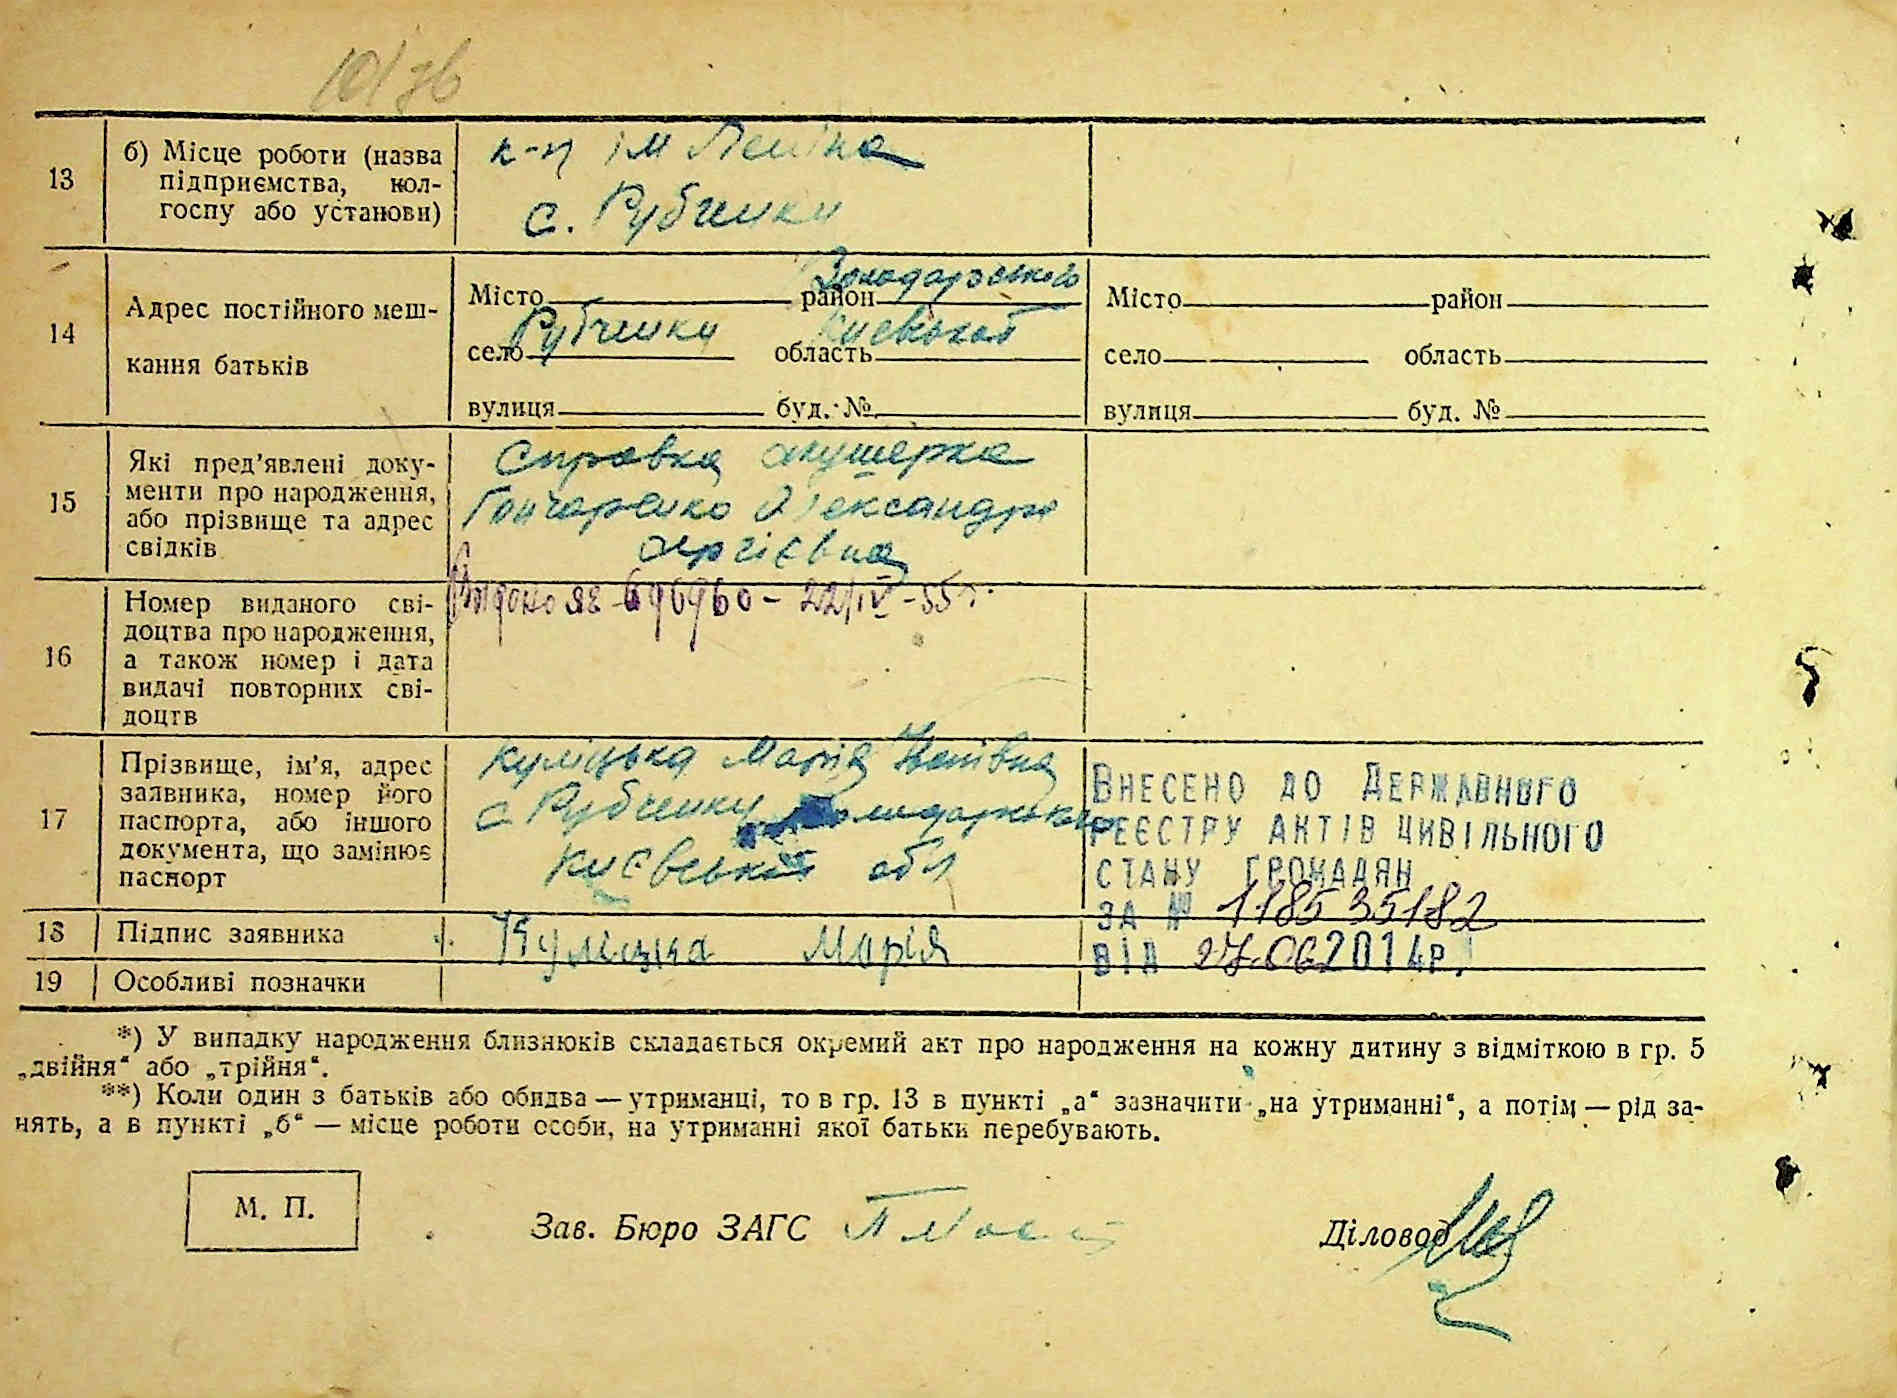 13
б) Місце роботи (назва
підприємства, кол-
госпу або установи)
к-п ім Леніна
с. Рубченки
14
Адрес постійного меш-
кання батьків
Місто район Володарський
село Рубченки область Київської
вулиця буд. №
Місто район
село область
вулиця буд. №
15
Які пред'явлені доку-
менти про народження,
або прізвище та адрес
свідків
Справка акушерка
Гончаренко Олександра
16
Номер виданого сві-
доцтва про народження,
а також номер і дата
видачі повторних сві-
доцтв
Видано ЯЕ 696960 - 22/IV-55 г.
17
Прізвище, ім'я, адрес
заявника, номер його
паспорта, або іншого
документа, що замінює
паспорт
Куліцька Марія
с. Рубченки
Київської обл
Внесено до Державного
реєстру актів цивільного
стану громадян
за № 118535182
від 27.06.2014р.
18
Підпис заявника
Куліцька Марія
19
Особливі позначки
*) У випадку народження близнюків складається окремий акт про народження на кожну дитину з відміткою в гр. 5
„двійня“ або „трійня“.
**) Коли один з батьків або обидва — утриманці, то в гр. 13 в пункті „а“ зазначити „на утриманні“, а потім — рід за-
нять, а в пункті „б“ — місце роботи особи, на утриманні якої батьки перебувають.
М. П.
Зав. Бюро ЗАГС
Діловод